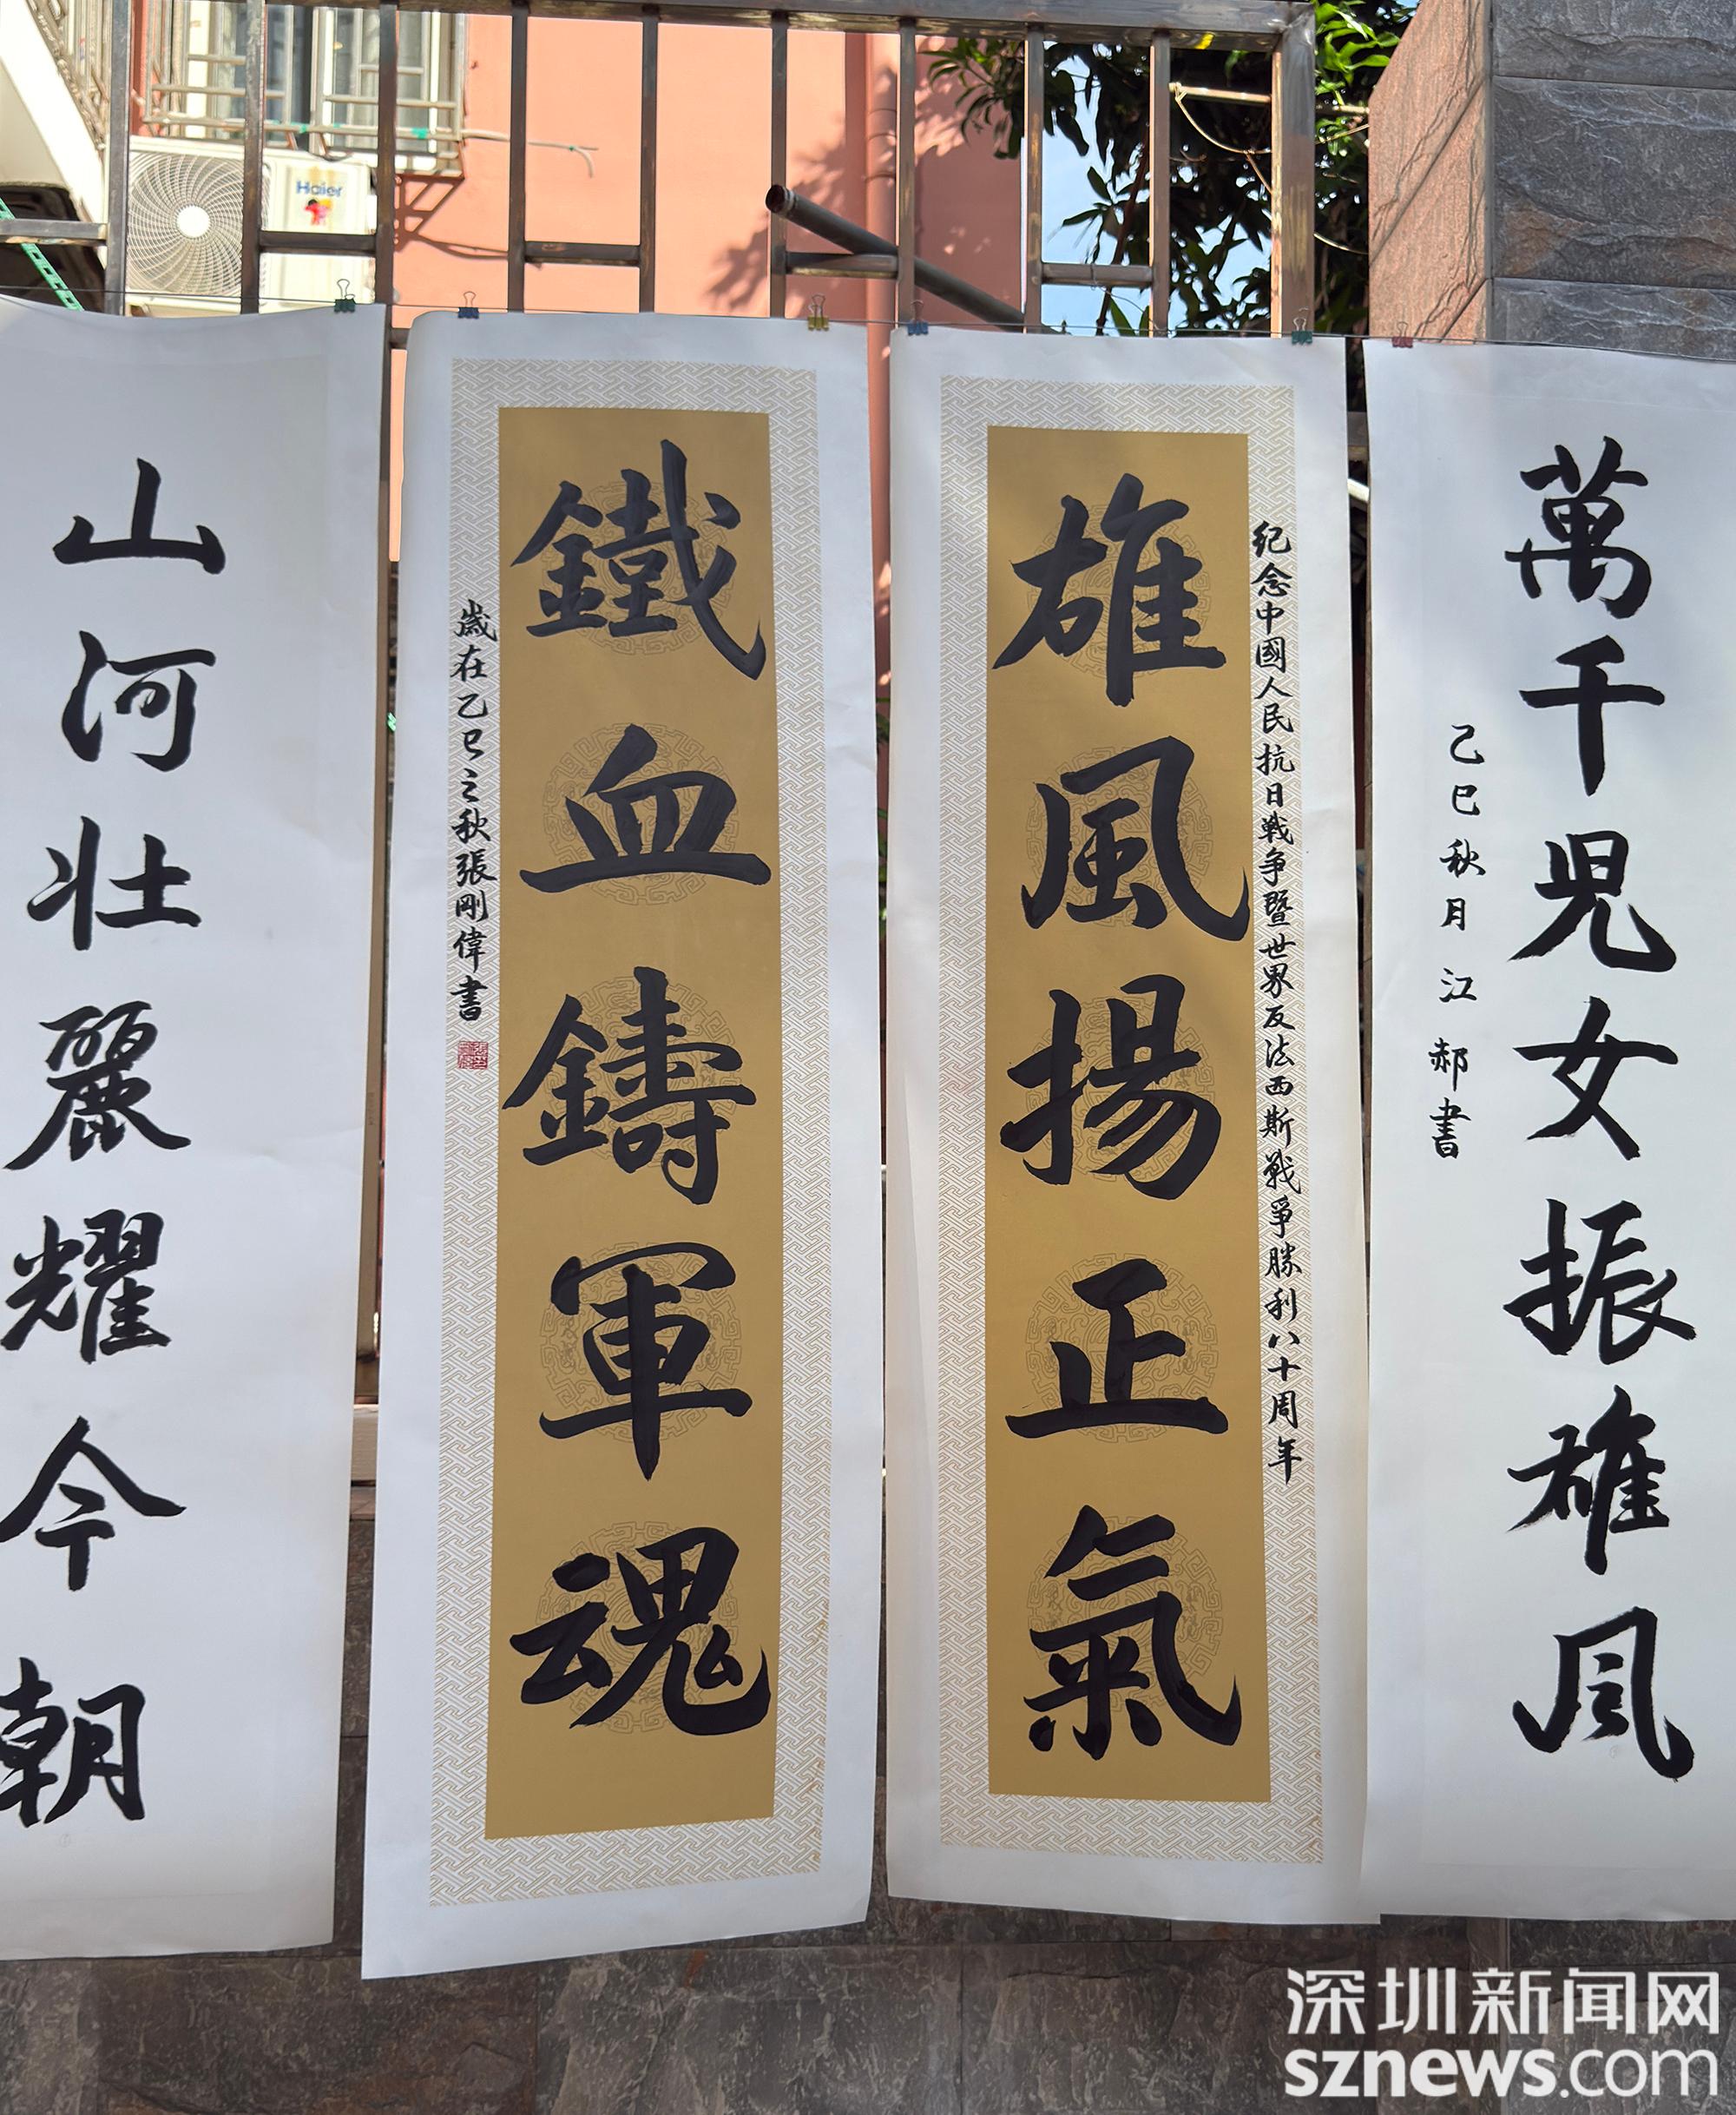 萬千児女振雄风
乙巳秋月江郝書
纪念中國人民抗日戦争暨世界反法西斯戦爭勝利八十周年
雄風揚正氣
鐵血鑄軍魂
歲在乙巳之秋張剛偉書
山河壮麗耀今朝
Haier
深圳新闻网
sznews.com